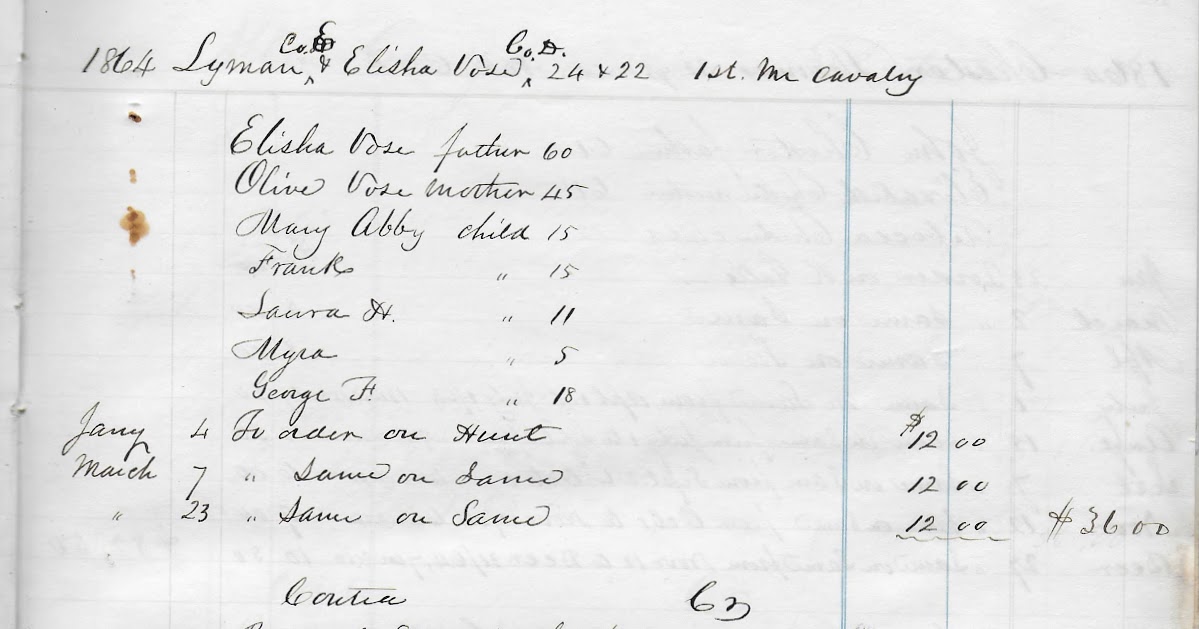 1864 Lyman Co. E & Elisha Vose Co. D. 24 & 22 1st. Me Cavalry
Elisha Vose father 60
Olive Vose Mother 45
Mary Abby child 15
Frank " 15
Laura H. " 11
Myra " 5
George F. " 18
Jany 4 To order on Hunt $12 00
March 7 " Same on Same 12 00
" 23 " Same on Same 12 00 $36 00
Contra Cr